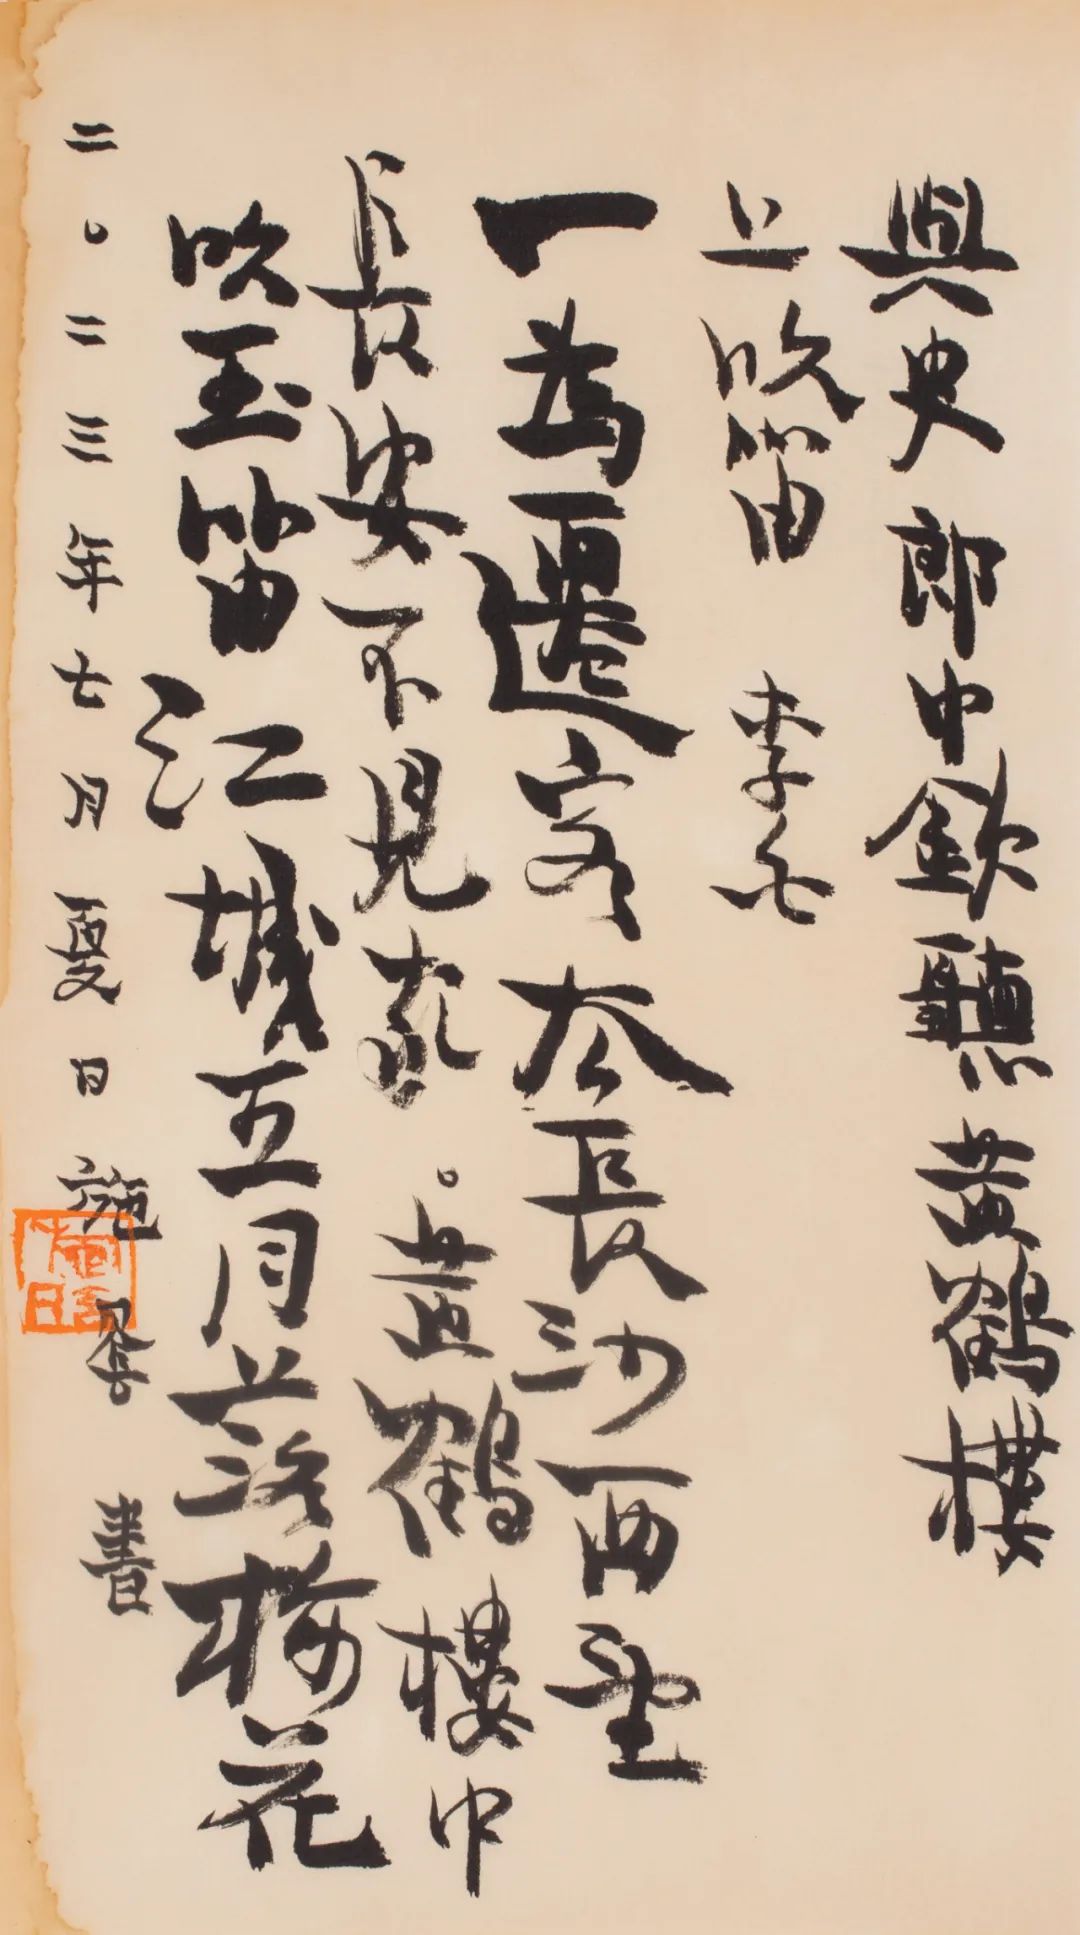 與史郎中欽聽黃鶴樓
上吹笛 李白
一為遷客去長沙西望
長安不見家。黃鶴樓中
吹玉笛江城五月落梅花
二〇二三年七月夏日施 書